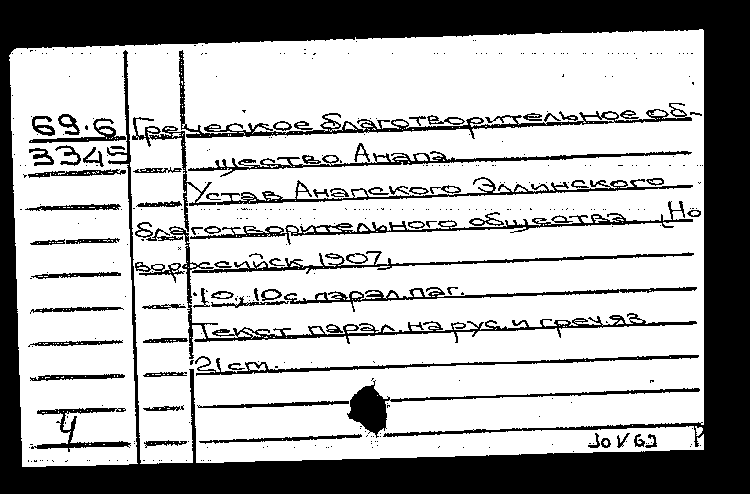 69.6 Греческое благотворительное об-
3345 щество. Анапа.
Устав Анапского Эллинского
благотворительного общества. [Но
вороссийск, 1907]
10, 10 с. парал. паг.
Текст парал. на рус. и греч. яз.
21 cm.
4
30 V 63 Р